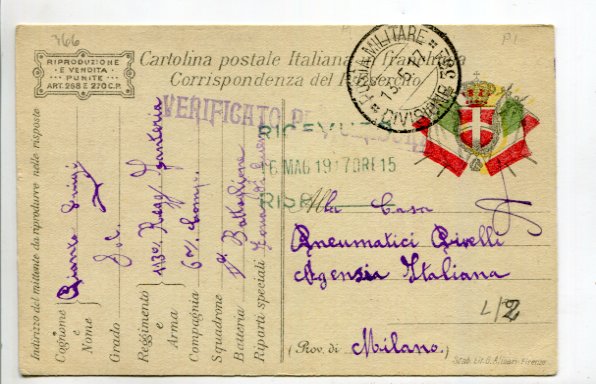 366
P.I.
RIPRODUZIONE
E VENDITA
PUNITE
ART. 268 E 270 C.P.
Cartolina postale Italiana in franchigia
Corrispondenza del R. Esercito
POSTA MILITARE
DIVISIONE
VERIFICATO PER CENSURA
RICEVUTO
6 MAG 1917 ORE 15
RISP
Indirizzo del mittente da riprodurre nelle risposte
Cognome e Nome
Luigi
Grado
Sol.
Reggimento e Arma
113° Regg. Fanteria
Compagnia
6ª Comp.
Squadrone
Batteria
Battaglione
Riparti speciali
Zona di guerra
Alla Casa
Pneumatici Pirelli
Agenzia Italiana
L/2
(Prov. di
Milano.
)